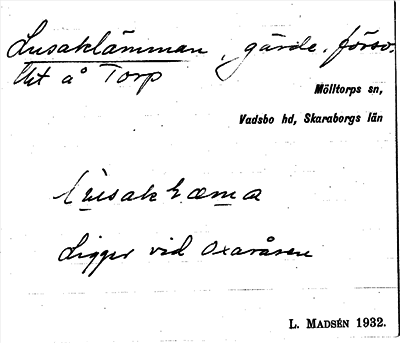 Lusaklämman, gärde, försv.
Ut å Torp
Mölltorps sn,
Vadsbo hd, Skaraborgs län
Ligger vid Oxaråsen
L. MADSÉN 1932.